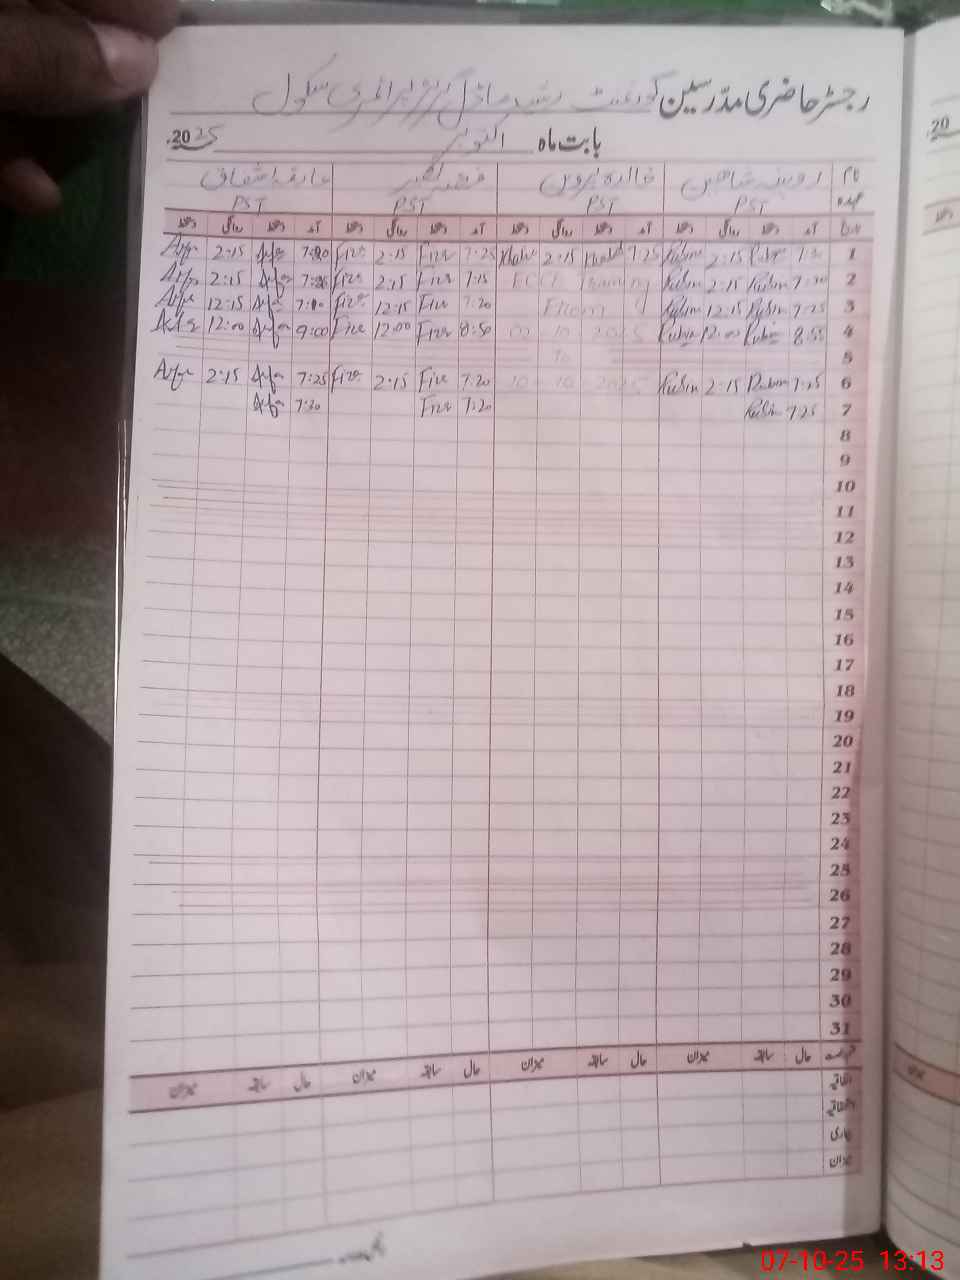 رجسٹر حاضری مدرسین گورنمنٹ ماڈل گرلز پرائمری سکول
بابت ماہ اکتوبر 2025ء
نام روبینہ شاہین خالدہ پروین عارفہ اشفاق
عہدہ PST PST PST PST
تاریخ آمد دستخط روانگی دستخط آمد دستخط روانگی دستخط آمد دستخط روانگی دستخط آمد دستخط روانگی دستخط
1 7:30 Rubin 2:15 Rubin 7:25 Khalid 2:15 Khalid 7:25 Fize 2:15 Fize Arfa 2:15 Arfa
2 7:30 Rubin 2:15 Rubin ECCE Training 7:15 Fize 2:15 Fize Arfa 2:15 Arfa
3 7:25 Rubin 12:15 Rubin From 7:20 Fize 12:15 Fize Arfa 12:15 Arfa
4 8:55 Rubin 12:00 Rubin 02-10-2025 8:50 Fize 12:00 Fize 9:00 Arfa 12:00 Arfa
5 To
6 7:25 Rubin 2:15 Rubin 10-10-2025 7:20 Fize 2:15 Fize 7:25 Arfa 2:15 Arfa
7 7:25 Rubin 7:20 Fize 7:30 Arfa
8
9
10
11
12
13
14
15
16
17
18
19
20
21
22
23
24
25
26
27
28
29
30
31
حال سابقہ میزان حال سابقہ میزان حال سابقہ میزان حال سابقہ میزان
اتفاقیہ
استحقاقیہ
بیماری
میزان
20
07-10-25 13:13